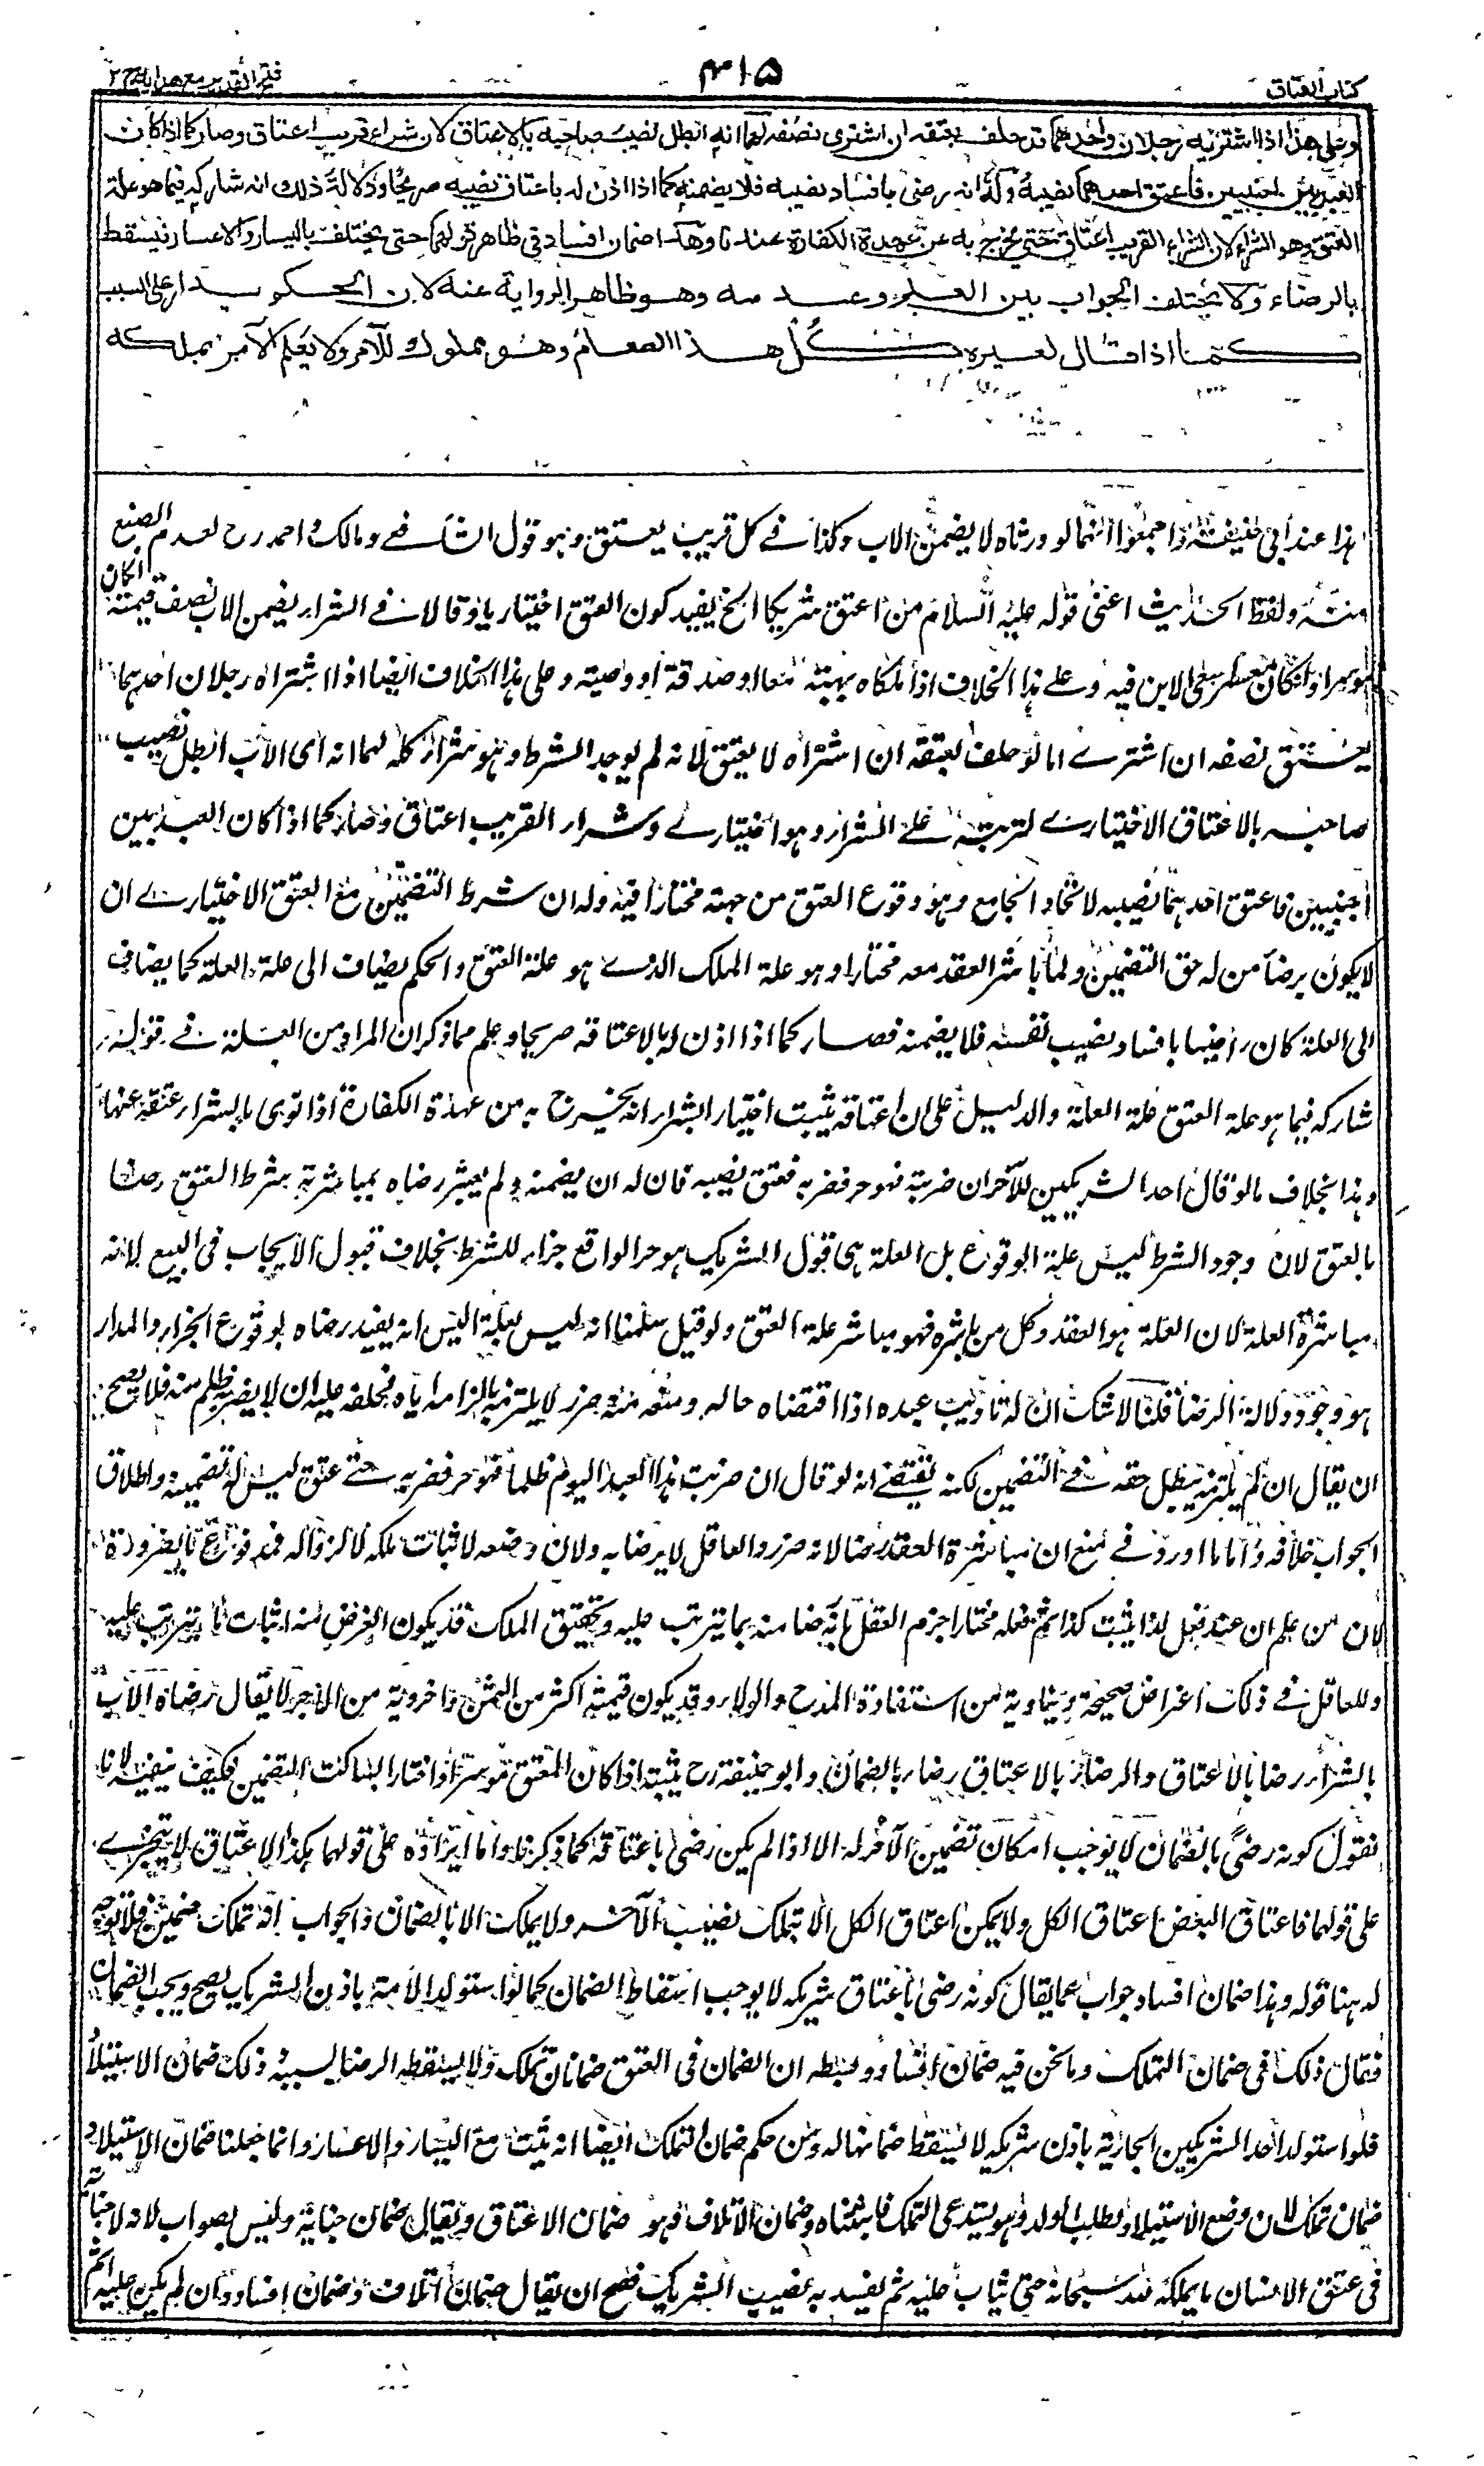 كتاب العتاق
٣١٥
فتح القدير مع هدايه ج ٢
وعلى هذا اذا اشتريه رجلان واحدهما قد حلف بعتقه ان اشترى نصفه لهما انه ابطل نصيب صاحبه بالاعتاق لان شراء قريب اعتاق وصار كما اذا كان
العبد بين اجنبيين فاعتق احدهما نصيبه وله انه رضى بافساد نصيبه فلا يضمنه كما اذا اذن له باعتاق نصيبه صريحا ودلالة ذلك انه شاركه فيما هو علة
العتق وهو الشراء لان الشراء القريب اعتاق حتى يخرج به عن عهدة الكفارة عندنا وهذا ضمان افساد في ظاهر قولهما حتى يختلف باليسار والاعسار فيسقط
بالرضاء ولا يختلف الجواب بين العلم وعدمه وهو ظاهر الرواية عنه لان الحكم يدار على السبب
كما اذا قال لغيره كل هذا الطعام وهو مملوك للآمر ولا يعلم الآمر بملكه
هذا عند أبي حنيفة واجمعوا انهما لو ورثاه لا يضمن الاب وكذا في كل قريب يعتق وهو قول الشافعي ومالك واحمد رح لعدم الصنع
منه ولفظ الحديث اعنى قوله عليه السلام من اعتق شريكا الخ يفيد كون العتق اختياريا وقالا في الشراء يضمن الاب نصف قيمته ان كان
موسرا وان كان معسرا سعى الابن فيه وعلى هذا الخلاف اذا ملكاه بهبة معا او صدقة او وصية وعلى هذا الخلاف ايضا اذا اشتراه رجلان احدهما
بعتق نصفه ان اشترى اما لو حلف بعتقه ان اشتراه لا يعتق لانه لم يوجد الشرط وهو شراء كله لهما انه اى الاب ابطل نصيب
صاحبه بالاعتاق الاختيارى لترتبه على الشراء وهو اختيارى وشراء القريب اعتاق وصار كما اذا كان العبد بين
اجنبيين فاعتق احدهما نصيبه لاتحاد الجامع وهو وقوع العتق من جهته مختارا فيه وله ان شرط التضمين مع العتق الاختيارى ان
لا يكون برضا من له حق التضمين ولما باشر العقد معه مختارا وهو علة الملك الذى هو علة العتق والحكم يضاف الى علة العلة كما يضاف
الى العلة كان راضيا بافساد نصيب نفسه فلا يضمنه فصار كما اذا اذن له بالاعتاقه صريحا وعلم مما ذكر ان المراد من العلة فى قوله
شاركه فيما هو علة العتق علة العلة والدليل على ان اعتاقه يثبت اختيار الشراء انه يخرج به من عهدة الكفارة اذا نوى بالشراء عتقه عنها
وهذا بخلاف ما لو قال احد الشريكين للآخر ان ضربته فهو حر فضربه فعتق نصيبه فان له ان يضمنه ولم يعتبر رضاه بمباشرته بشرط العتق رضا
بالعتق لان وجود الشرط ليس علة الوقوع بل العلة هى قول الشريك هو حر الواقع جزاء للشرط بخلاف قبول الايجاب فى البيع لانه
مباشرة العلة لان العلة هو العقد وكل من باشره فهو مباشر علة العتق ولو قيل سلمنا انه ليس بعلة اليس انه يفيد رضاه بوقوع الجزاء والمدار
هو وجود دلالة الرضا قلنا لا شك ان له تاديب عبده اذا اقتضاه حاله ومنعه منه ضرر لا يلتزمه بالزامه اياه فحلفه عليه ان لا يضربه ظلم منه فلا يصح
ان يقال ان لم يلتزمه يبطل حقه فى التضمين لكنه يقتضى انه لو قال ان ضربت هذا العبد اليوم ظلما فهو حر فضربه حتى عتق ليس له تضمينه واطلاق
الجواب خلافه واما ما اورد فى منع ان مباشرة العقد رضا لانه ضرر والعاقل لا يرضا به ولان وضعه لاثبات ملكه لا لزواله فمدفوع بالضرورة
لان من علم ان عند فعل كذا يثبت كذا ثم فعله مختارا جزم العقل بانه رضا منه بما يترتب عليه وتحقيق الملك قد يكون الغرض منه اثبات ما يترتب عليه
وللعاقل فى ذلك اغراض صحيحة دنياوية من استفادة المدح والولاء وقد يكون قيمته اكثر من الثمن واخروية من الاجر لا يقال رضاه الاب
بالشراء رضا بالاعتاق والرضا بالاعتاق رضاء بالضمان وابو حنيفة رح يثبته اذا كان المعتق موسرا واختار الساكت التضمين فكيف ينفيه لانا
نقول كونه رضى بالضمان لا يوجب امكان تضمين الآخر له الا اذا لم يكن رضى باعتاقه كما ذكرنا واما ايراده على قولهما هكذا الاعتاق لا يتجزى
على قولهما فاعتاق البعض اعتاق الكل ولا يمكن اعتاق الكل الا بتملك نصيب الآخر ولا يملك الا بالضمان والجواب انه تملك ضمنى فلا توجه
له هنا قوله وهذا ضمان افساد جواب عما يقال كونه رضى باعتاق شريكه لا يوجب اسقاط الضمان كما لو استولد الامة باذن الشريك يصح ويجب الضمان
فقال ذلك فى ضمان التملك وما نحن فيه ضمان افساد وبسطه ان الضمان فى العتق ضمانان تملك ولا يسقطه الرضا بسببه وذلك ضمان الاستيلاد
فلو استولد احد الشريكين الجارية باذن شريكه لا يسقط ضمانها له ومن حكم ضمان التملك ايضا انه يثبت مع اليسار والاعسار وانما جعلنا ضمان الاستيلاد
ضمان تملك لان وضع الاستيلاد لطلب الولد وهو يستدعى التملك فاثبتناه وضمان الاتلاف فهو ضمان الاعتاق ويقال ضمان جناية وليس بصواب لانه لا جناية
فى عتق الانسان ما يملكه لله سبحانه حتى يثاب عليه ثم يفسد به نصيب الشريك فصح ان يقال ضمان اتلاف وضمان افساد وان لم يكن عليه اثم